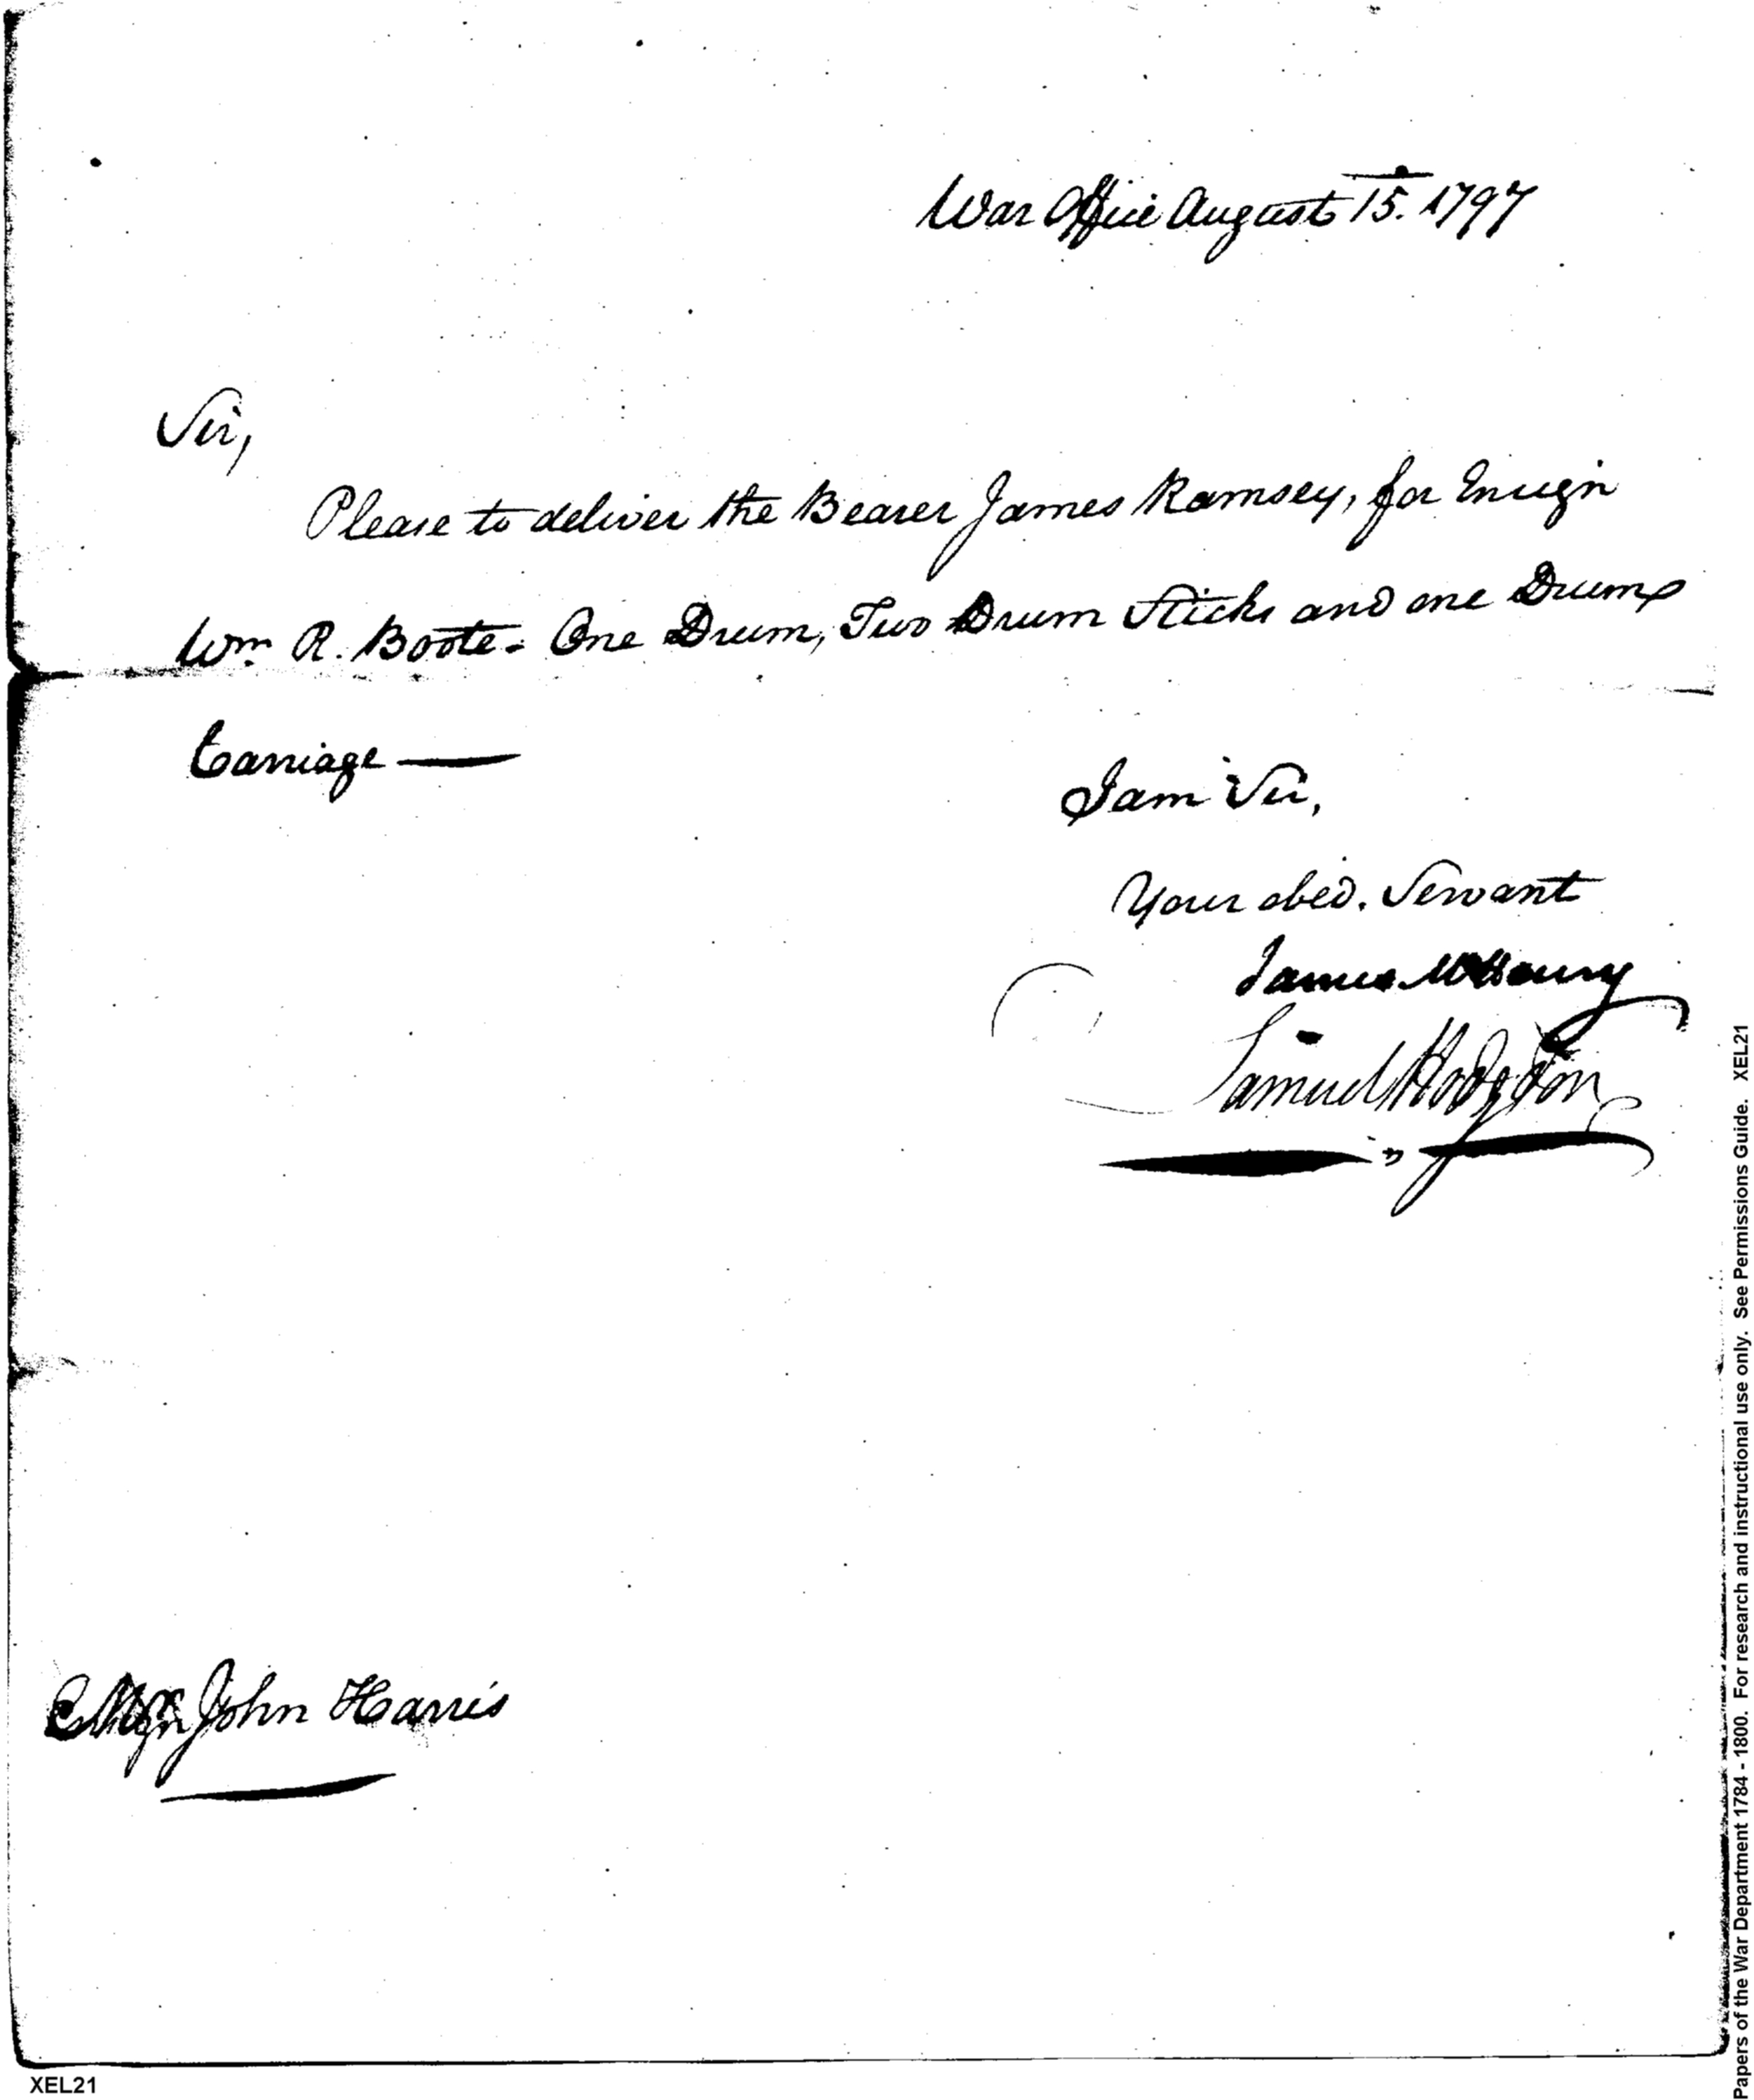 War Office August 15. 1797
Sir,
Please to deliver the Bearer James Ramsey, for Ensign
Wm. R. Boote - One Drum, Two Drum Sticks and one Drum
Carriage —
I am Sir,
Your obed. Servant
James McHenry
Samuel Hodgdon
John Harris
XEL21
Papers of the War Department 1784 - 1800. For research and instructional use only. See Permissions Guide. XEL21